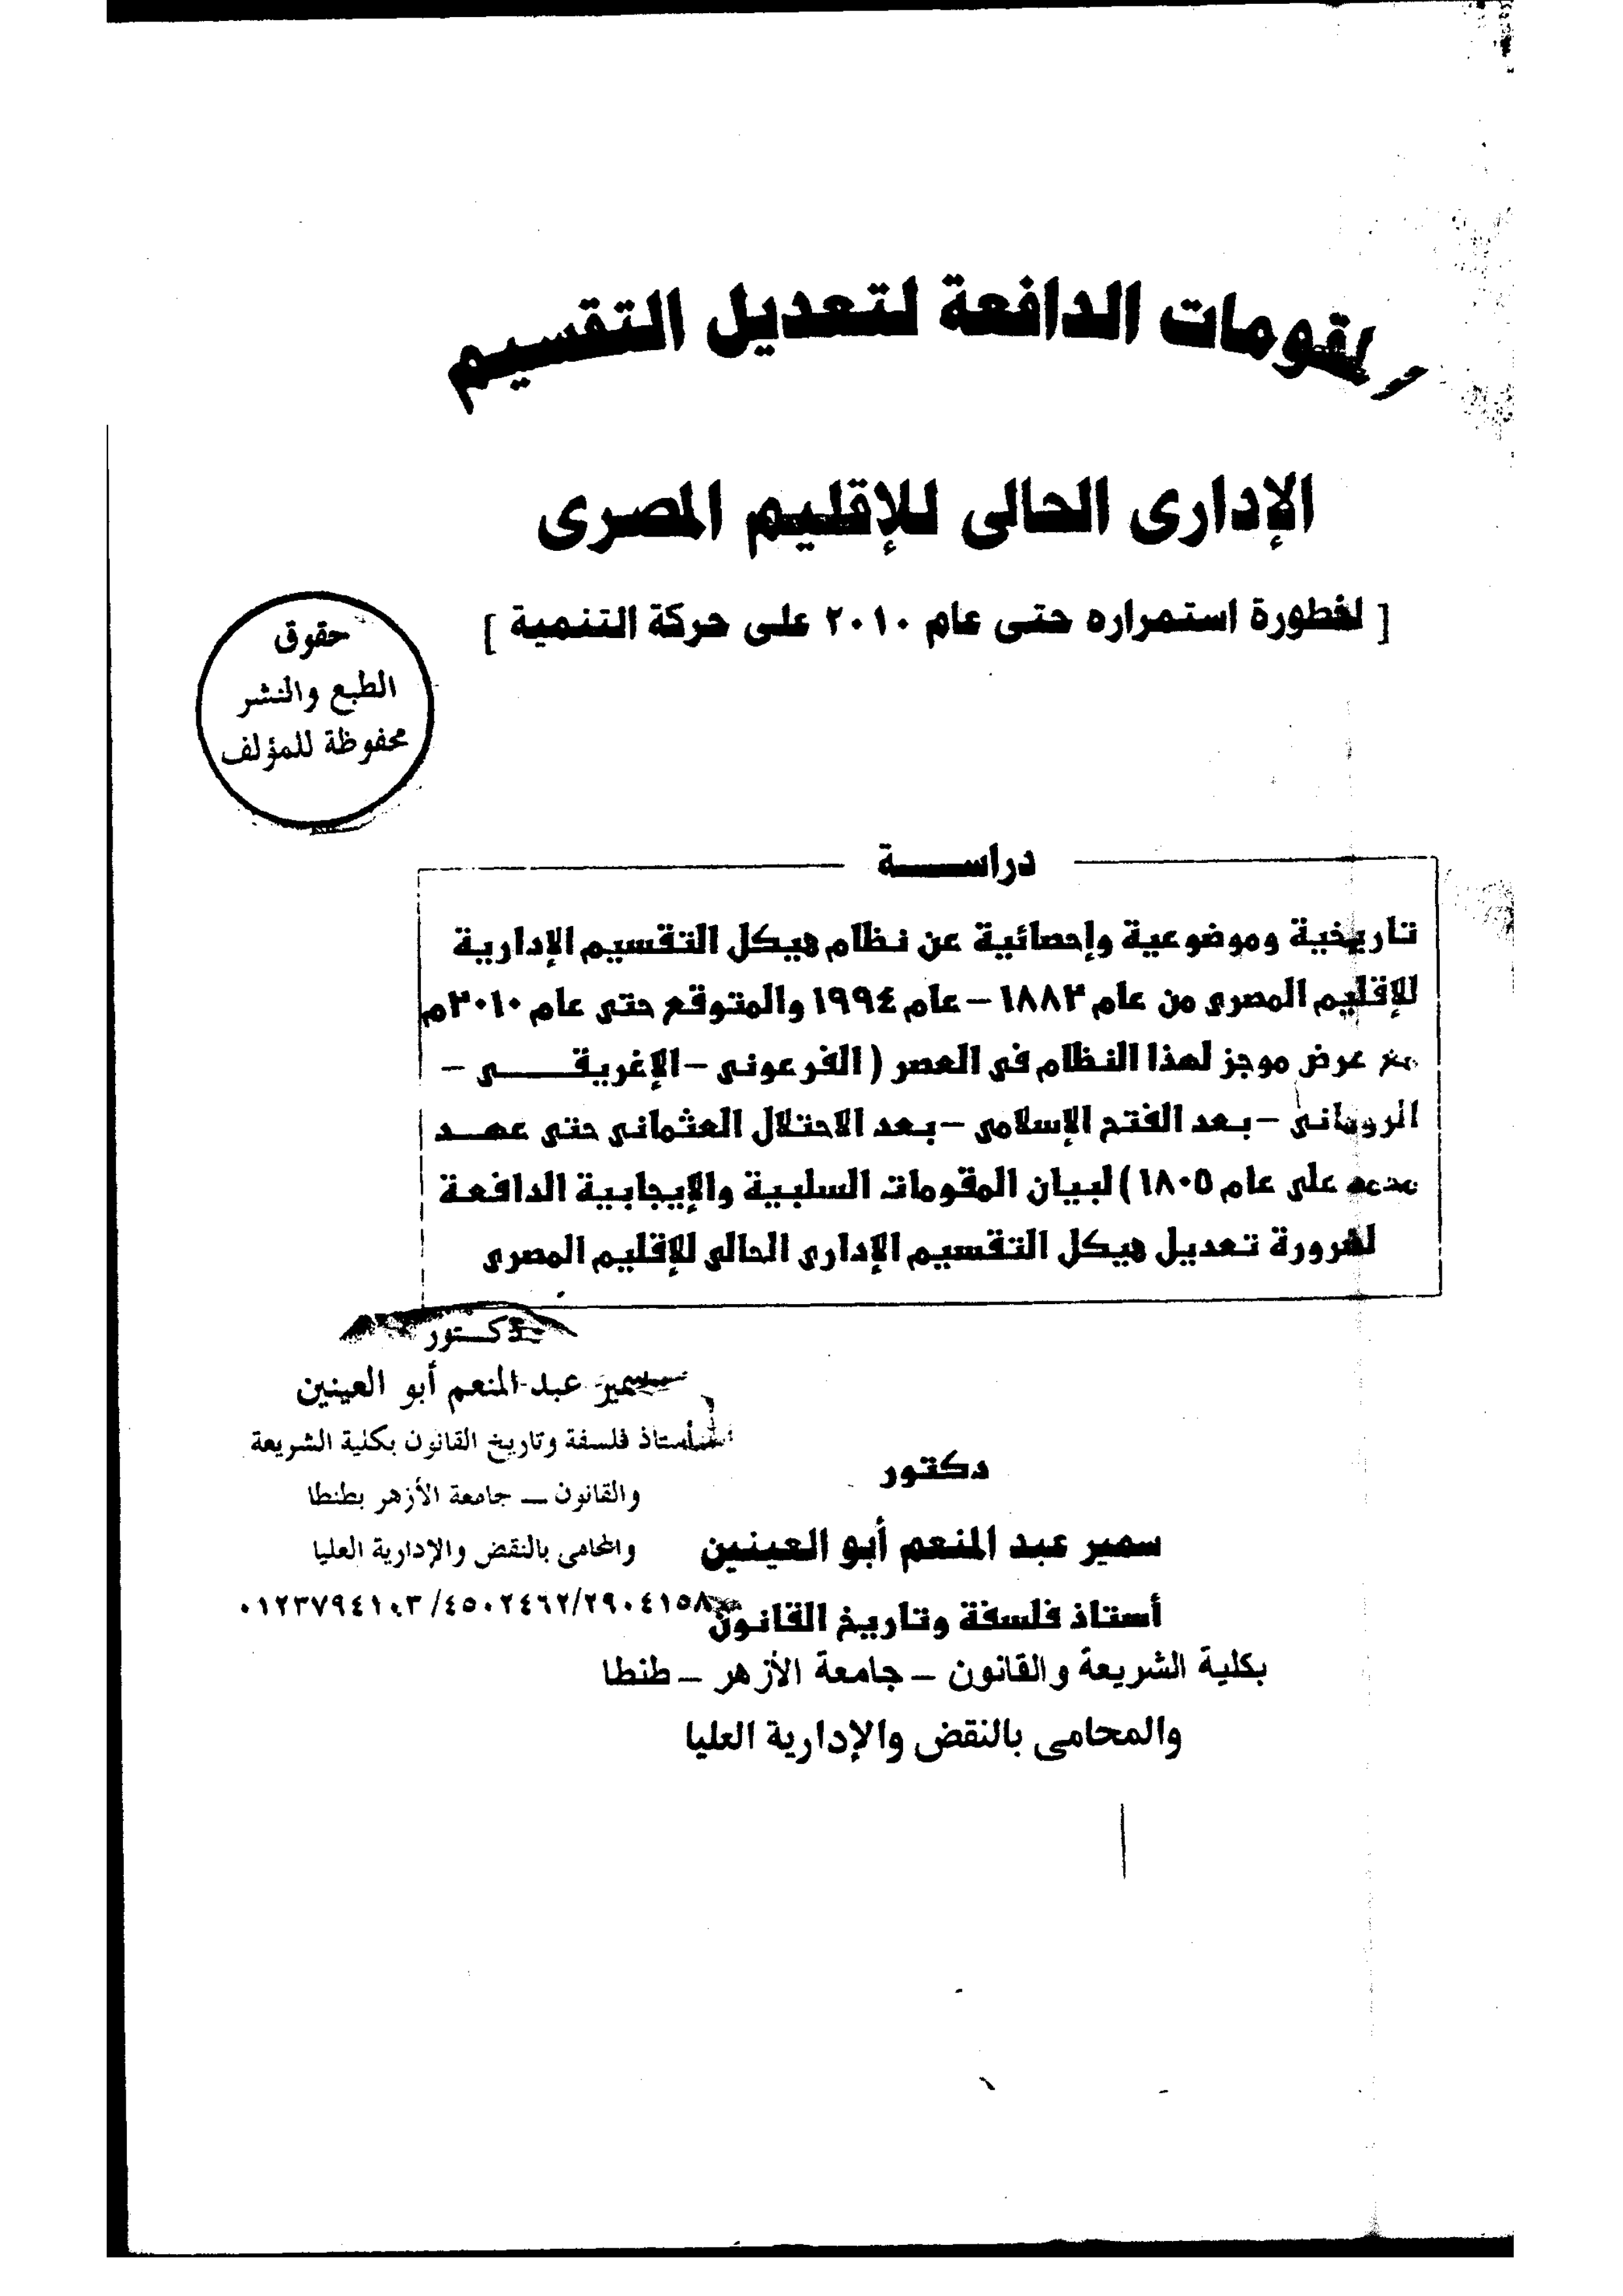 المقومات الدافعة لتعديل التقسيم
الإدارى الحالى للإقليم المصرى
[ لخطورة استمراره حتى عام ٢٠١٠ على حركة التنمية ]
حقوق
الطبع والنشر
محفوظة للمؤلف
دراســـــة
تاريخية وموضوعية وإحصائية عن نظام هيكل التقسيم الإدارية
للإقليم المصرى من عام ١٨٨٣ – عام ١٩٩٤ والمتوقع حتى عام ٢٠١٠م
مع عرض موجز لهذا النظام فى العصر ( الفرعونى – الإغريقـــــى –
الرومانى – بعد الفتح الإسلامى – بعد الاحتلال العثمانى حتى عهـــد
محمد على عام ١٨٠٥ ) لبيان المقومات السلبية والإيجابية الدافعة
لضرورة تعديل هيكل التقسيم الإدارى الحالى للإقليم المصرى
دكـتور
سمير عبد المنعم أبو العينين
أستاذ فلسفة وتاريخ القانون بكلية الشريعة
والقانون ــ جامعة الأزهر بطنطا
والمحامى بالنقض والإدارية العليا
٠١٢٣٧٩٤١٠٣/٤٥٠٢٤٦٢/٢٩٠٤١٥٨
دكتور
سمير عبد المنعم أبو العينين
أستاذ فلسفة وتاريخ القانون
بكلية الشريعة والقانون – جامعة الأزهر – طنطا
والمحامى بالنقض والإدارية العليا